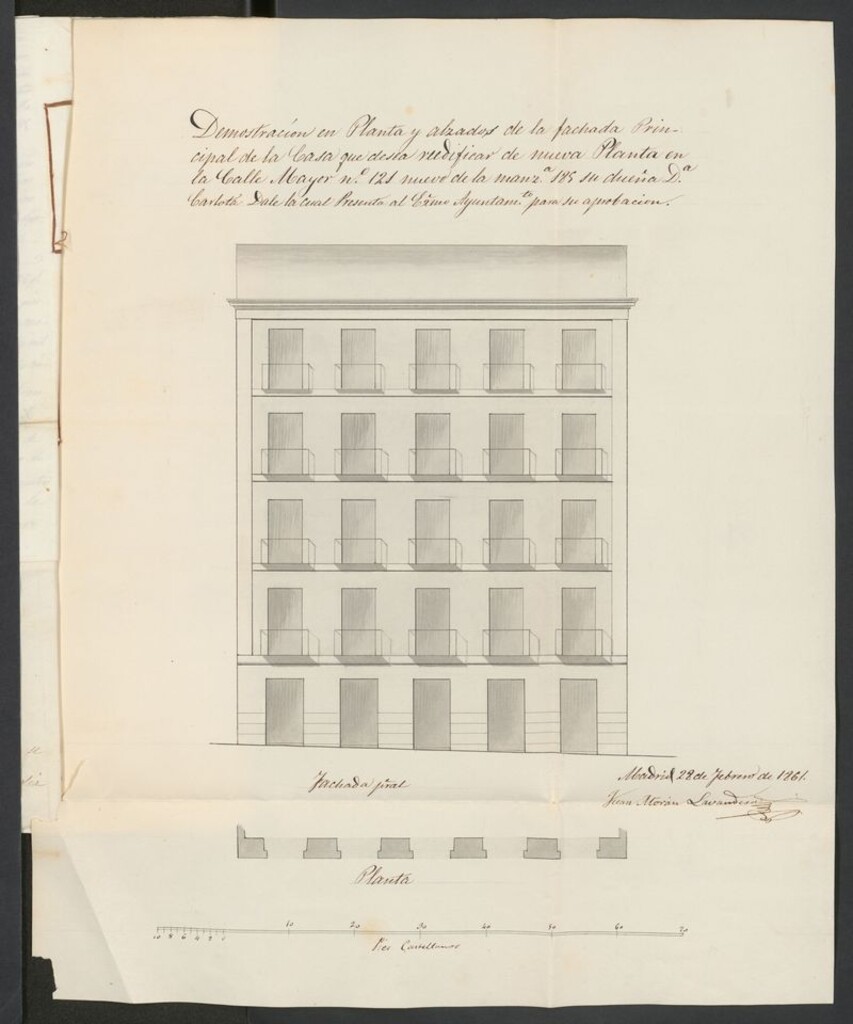 Demostración en Planta y alzados de la fachada Prin-
cipal de la Casa que desea reedificar de nueva Planta en
la Calle Mayor n.º 121 nuevo de la manz.ª 185 su dueña D.ª
Carlota Dale la cual Presenta al Ecsmo Ayuntam.to para su aprobacion.
Fachada pral
Madrid 28 de Febrero de 1861.
Juan Morán Lavandera
Planta
10 8 6 4 2 0 10 20 30 40 50 60 70
Pies Castellanos